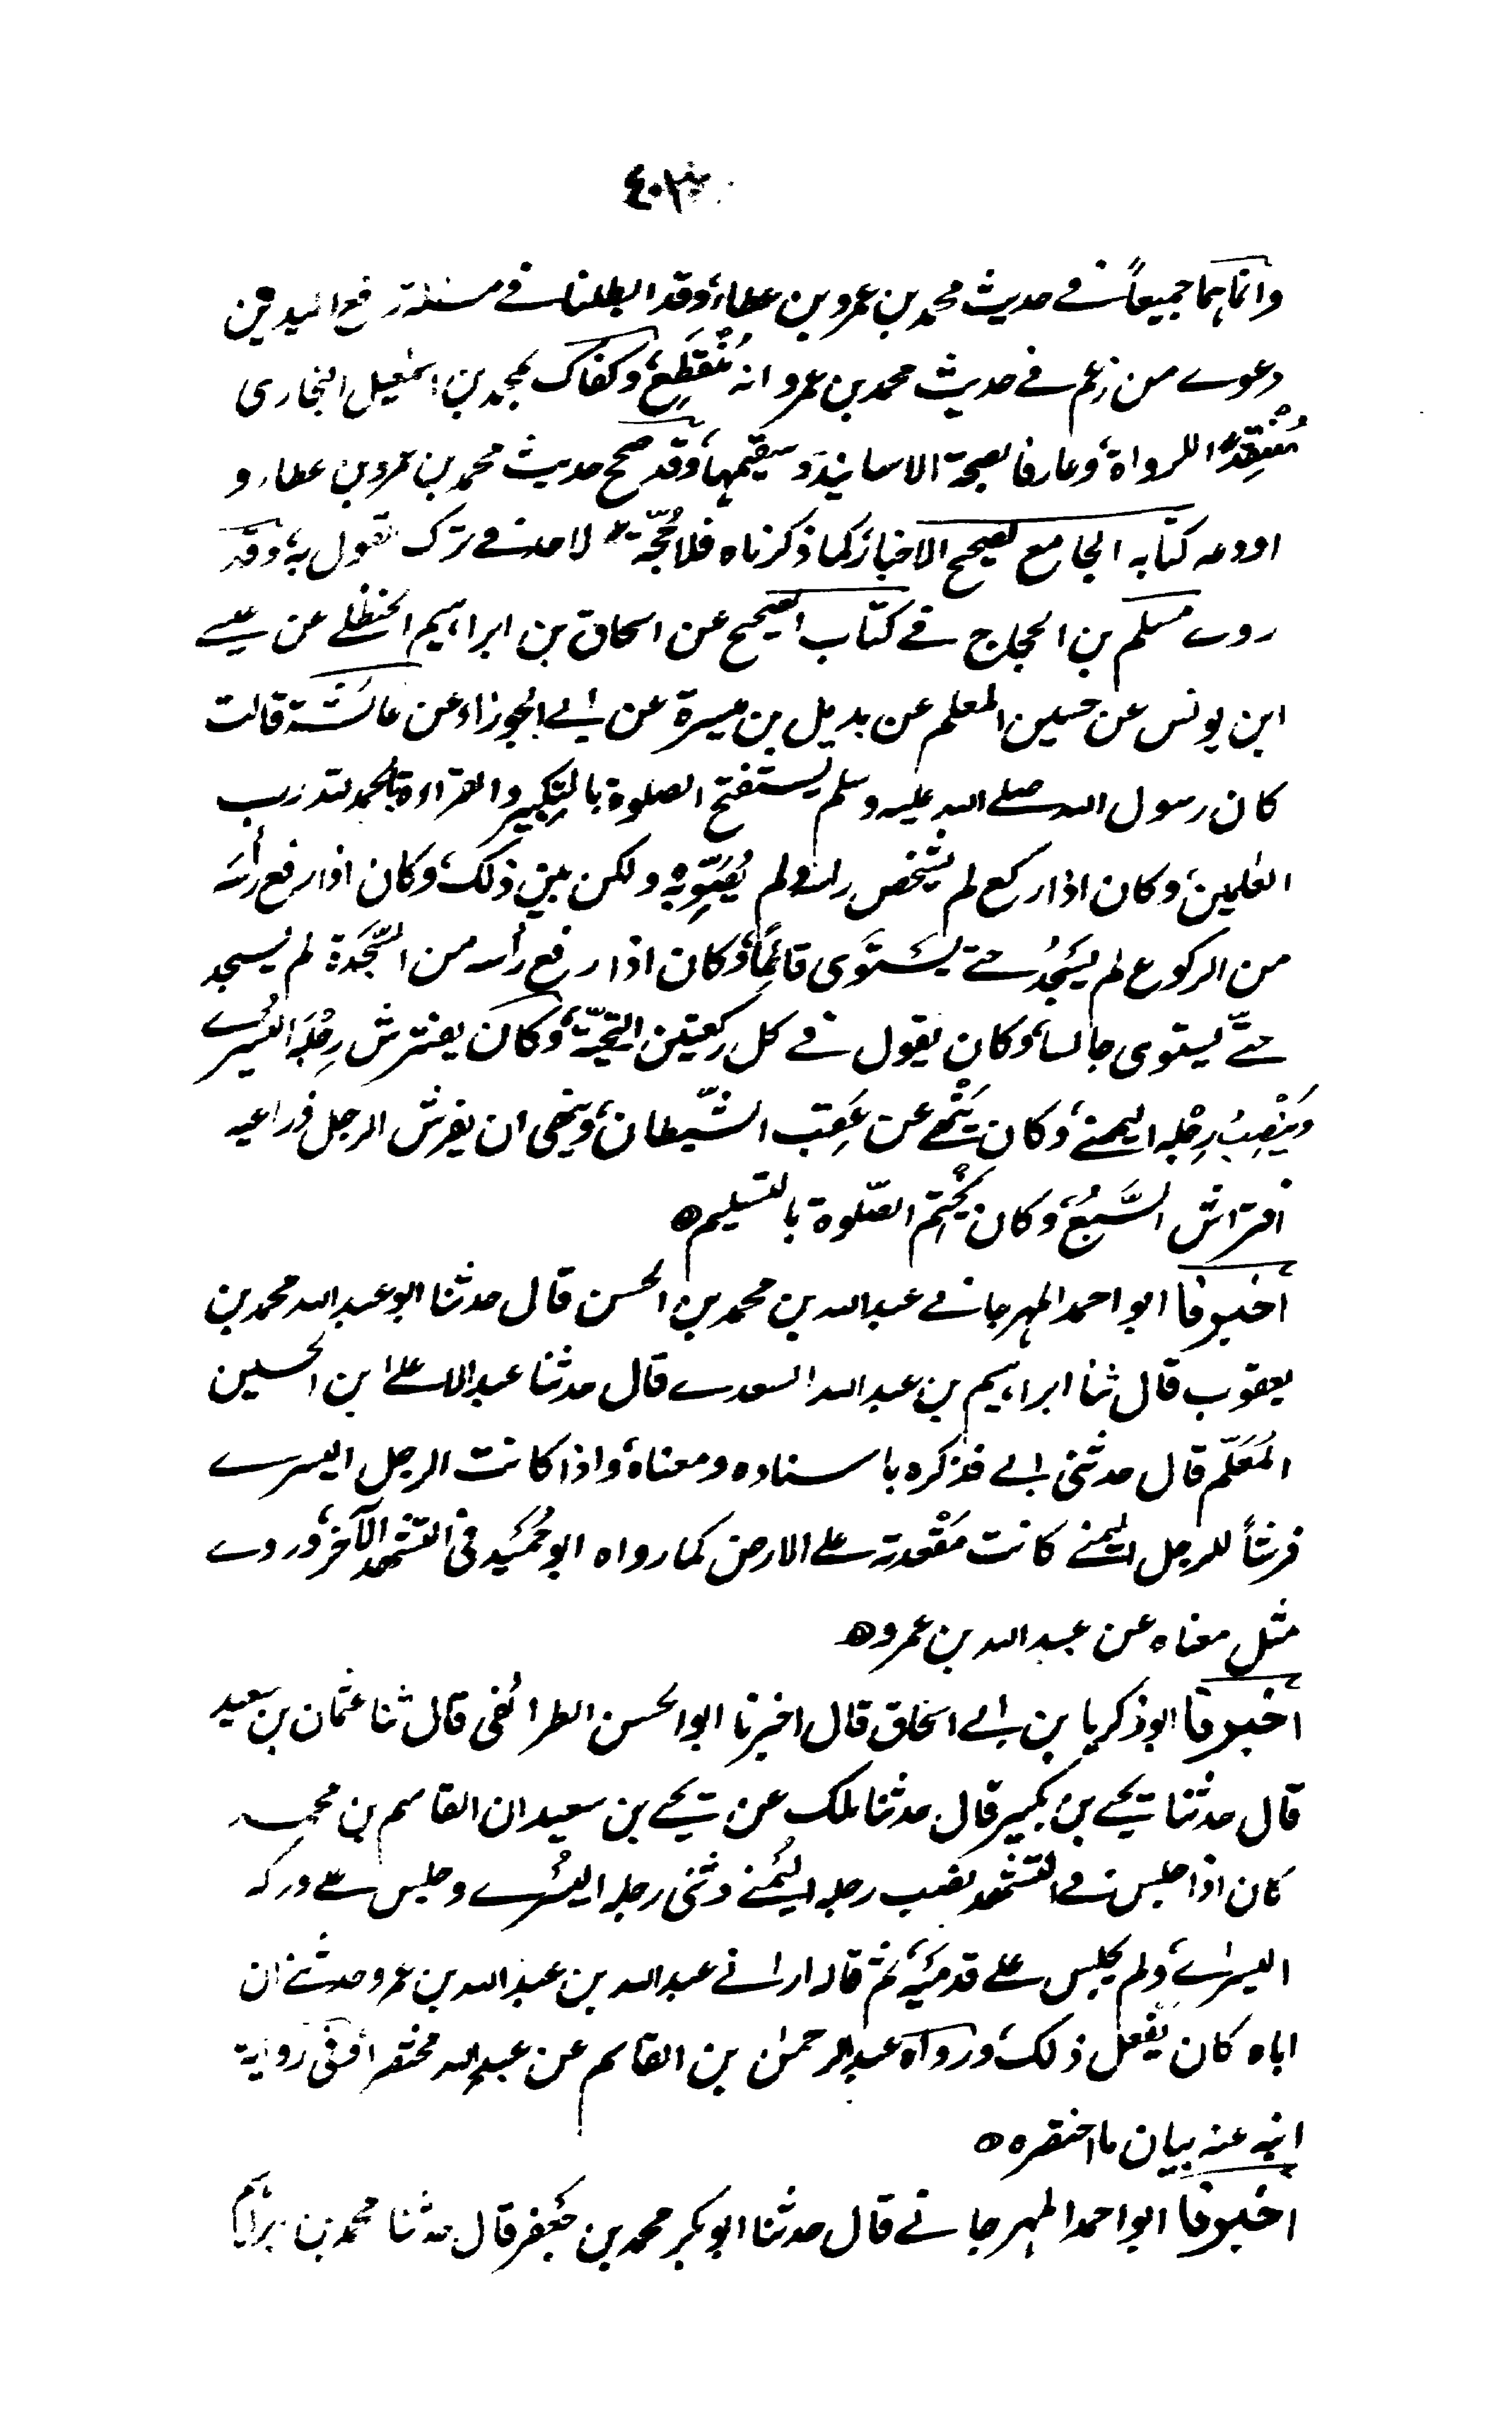 وانما هما جميعاً في حديث محمد بن عمرو بن عطاء، وقد ابطلنا في مسئلة رفع اليدين
دعوى من زعم في حديث محمد بن عمرو انه مُنْقَطِع، وكفاك بمحمد بن اسمعيل البخاري
مُنْتَقِداً للرواة، وعارفا بصحة الاسانيد وسقيمها، وقد صحح حديث محمد بن عمرو بن عطاء و
اودعه كتابه الجامع لصحيح الاخبار كما ذكرناه فلا حُجّة لاحد في ترك القول به، وقد
روى مسلم بن الحجاج في كتاب الصحيح عن اسحاق بن ابراهيم الحنظلي عن عيسى
ابن يونس عن حسين المعلم عن بديل بن ميسرة عن ابي الجوزاء عن عائشة قالت
كان رسول الله صلى الله عليه وسلم يستفتح الصلوة بالتكبير والقراءة بالحمد لله رب
العلمين، وكان اذا ركع لم يشخص راسه ولم يُصَوِّبْه ولكن بين ذلك، وكان اذا رفع رأسه
من الركوع لم يَسْجُدْ حتى يَسْتَوِى قائماً، وكان اذا رفع رأسه من السَّجْدَة لم يسجد
حتّى يستوى جالسا، وكان يقول في كل ركعتين التحيّة، وكان يفترش رِجْلَه اليُسرى
ويَنْصِبُ رِجْلَه اليمنى، وكان يَنْهى عن عَقِب الشّيطان، وينهى ان يفرش الرجل ذراعيه
افتراش السَّبُعِ، وكان يَخْتِم الصّلوة بالتسليم ه
اخبرنا ابو احمد المهرجاني عبدالله بن محمد بن الحسن قال حدثنا ابو عبدالله محمد بن
يعقوب قال ثنا ابراهيم بن عبدالله السعدى قال حدثنا عبدالاعلى ابن الحسين
المُعَلّم قال حدثني ابي فذكره باسناده ومعناه، واذا كانت الرجل اليسرى
فرشاً للرجل اليمنى كانت مَقْعدته على الارض كما رواه ابو حُمَيْد في التشهد الآخر، وروى
مثل معناه عن عبدالله بن عمر وه
اخبرنا ابو زكريا بن ابي اسحاق قال اخبرنا ابو الحسن الطرائفي قال ثنا عثمان بن سعيد
قال حدثنا يحيى بن بكير قال حدثنا ملك عن يحيى بن سعيد ان القاسم بن محمد
كان اذا جلس في التشهد نصب رجله اليُمْنى وثنى رجله اليُسْرى وجلس على وركه
اليسرى، ولم يجلس على قدميه، ثم قال ارانى عبدالله بن عبدالله بن عمر وحدثني ان
اباه كان يفعل ذلك، ورواه عبدالرحمن بن القاسم عن عبدالله مختصراً، وفي رواية
ابنه عنه بيان ما اختصره ه
اخبرنا ابو احمد المهرجاني قال حدثنا ابو بكر محمد بن جعفر قال حدثنا محمد بن ابراهيم